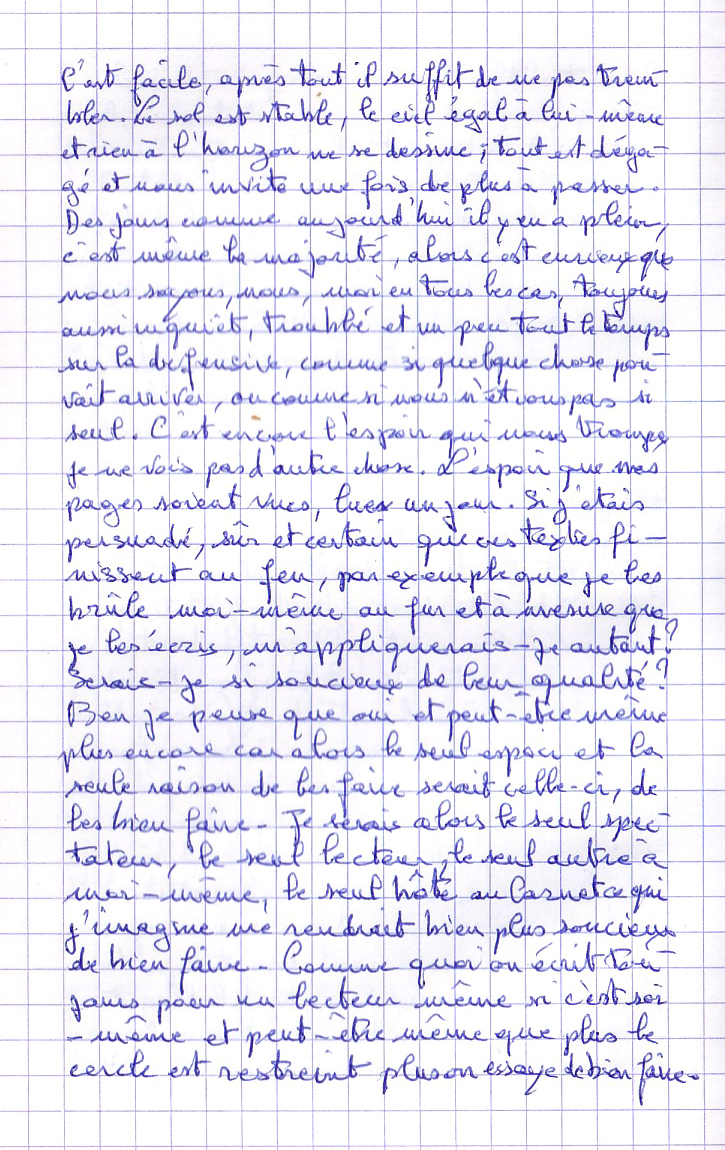 C'est facile, après tout il suffit de ne pas trem-
bler. Le sol est stable, le ciel égal à lui-même
et rien à l'horizon ne se dessine ; tout est déga-
gé et nous invite une fois de plus à passer.
Des jours comme aujourd'hui il y en a plein,
c'est même la majorité, alors c'est curieux que
nous soyons, nous, moi en tous les cas, toujours
aussi inquiet, troublé et un peu tout le temps
sur la défensive, comme si quelque chose pou-
vait arriver, ou comme si nous n'étions pas si
seul. C'est encore l'espoir qui nous trompe
je ne vois pas d'autre chose. L'espoir que mes
pages soient vues, lues un jour. Si j'étais
persuadé, sûr et certain que ces textes fi-
nissent au feu, par exemple que je les
brûle moi-même au fur et à mesure que
je les écris, m'appliquerais-je autant ?
Serais-je si soucieux de leur qualité ?
Ben je pense que oui et peut-être même
plus encore car alors le seul espoir et la
seule raison de les faire serait celle-ci, de
les bien faire. Je serais alors le seul spec-
tateur, le seul lecteur, le seul autre à
moi-même, le seul hôte au Carnet ce qui
j'imagine me rendrait bien plus soucieux
de bien faire. Comme quoi on écrit tou-
jours pour un lecteur même si c'est soi
-même et peut-être même que plus le
cercle est restreint plus on essaye de bien faire.